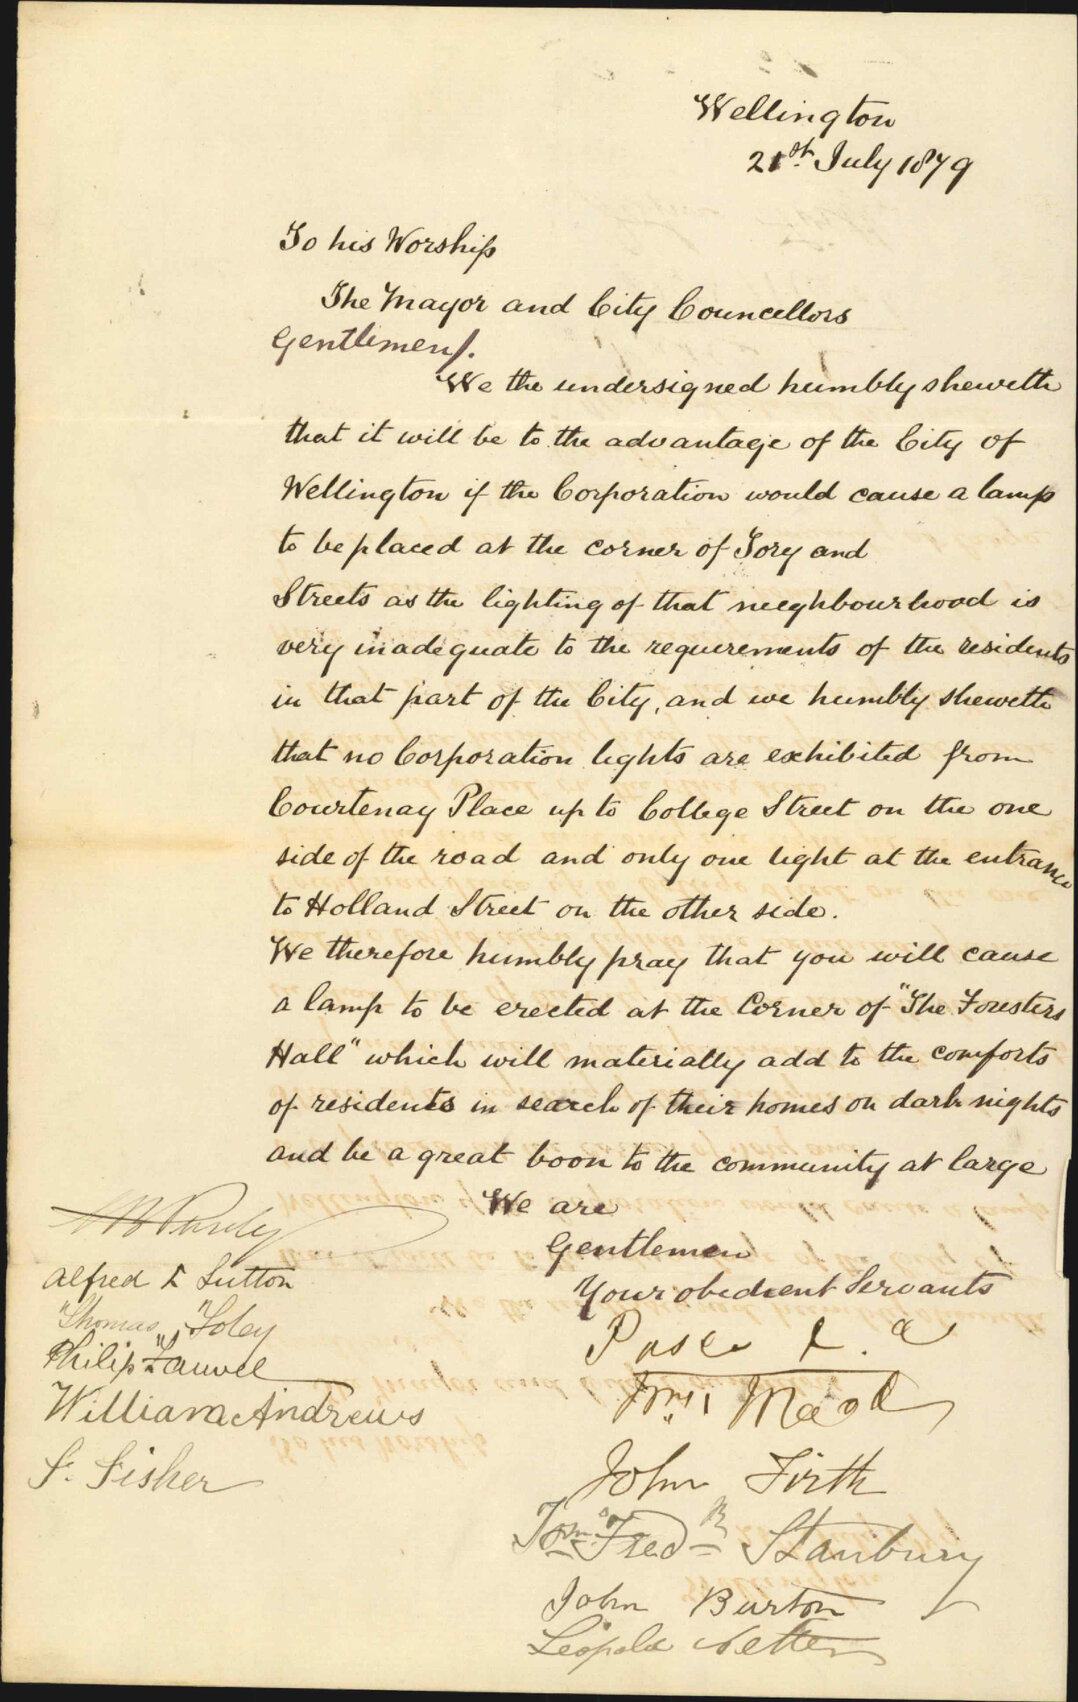 Wellington
21st July 1879
To his Worship
The Mayor and City Councellors
Gentlemen/.
We the undersigned humbly sheweth
that it will be to the advantage of the City of
Wellington if the Corporation would cause a lamp
to be placed at the corner of Tory and
Streets as the lighting of that neeghbourhood is
very inadequate to the requerements of the residents
in that part of the City, and we humbly sheweth
that no Corporation lights are exhibited from
Courtenay Place up to College Street on the one
side of the road and only one light at the entrance
to Holland Street on the other side.
We therefore humbly pray that you will cause
a lamp to be erected at the Corner of "The Foresters
Hall" which will materially add to the comforts
of residents in search of their homes on dark nights
and be a great boon to the community at large
We are
Gentlemen
Your obedient Servants
Wm Mead
John Firth
Fred Stanbury
John Burton
Leopold Netter
Alfred Sutton
Thomas Foley
Philip Fauvel
William Andrews
F. Fisher